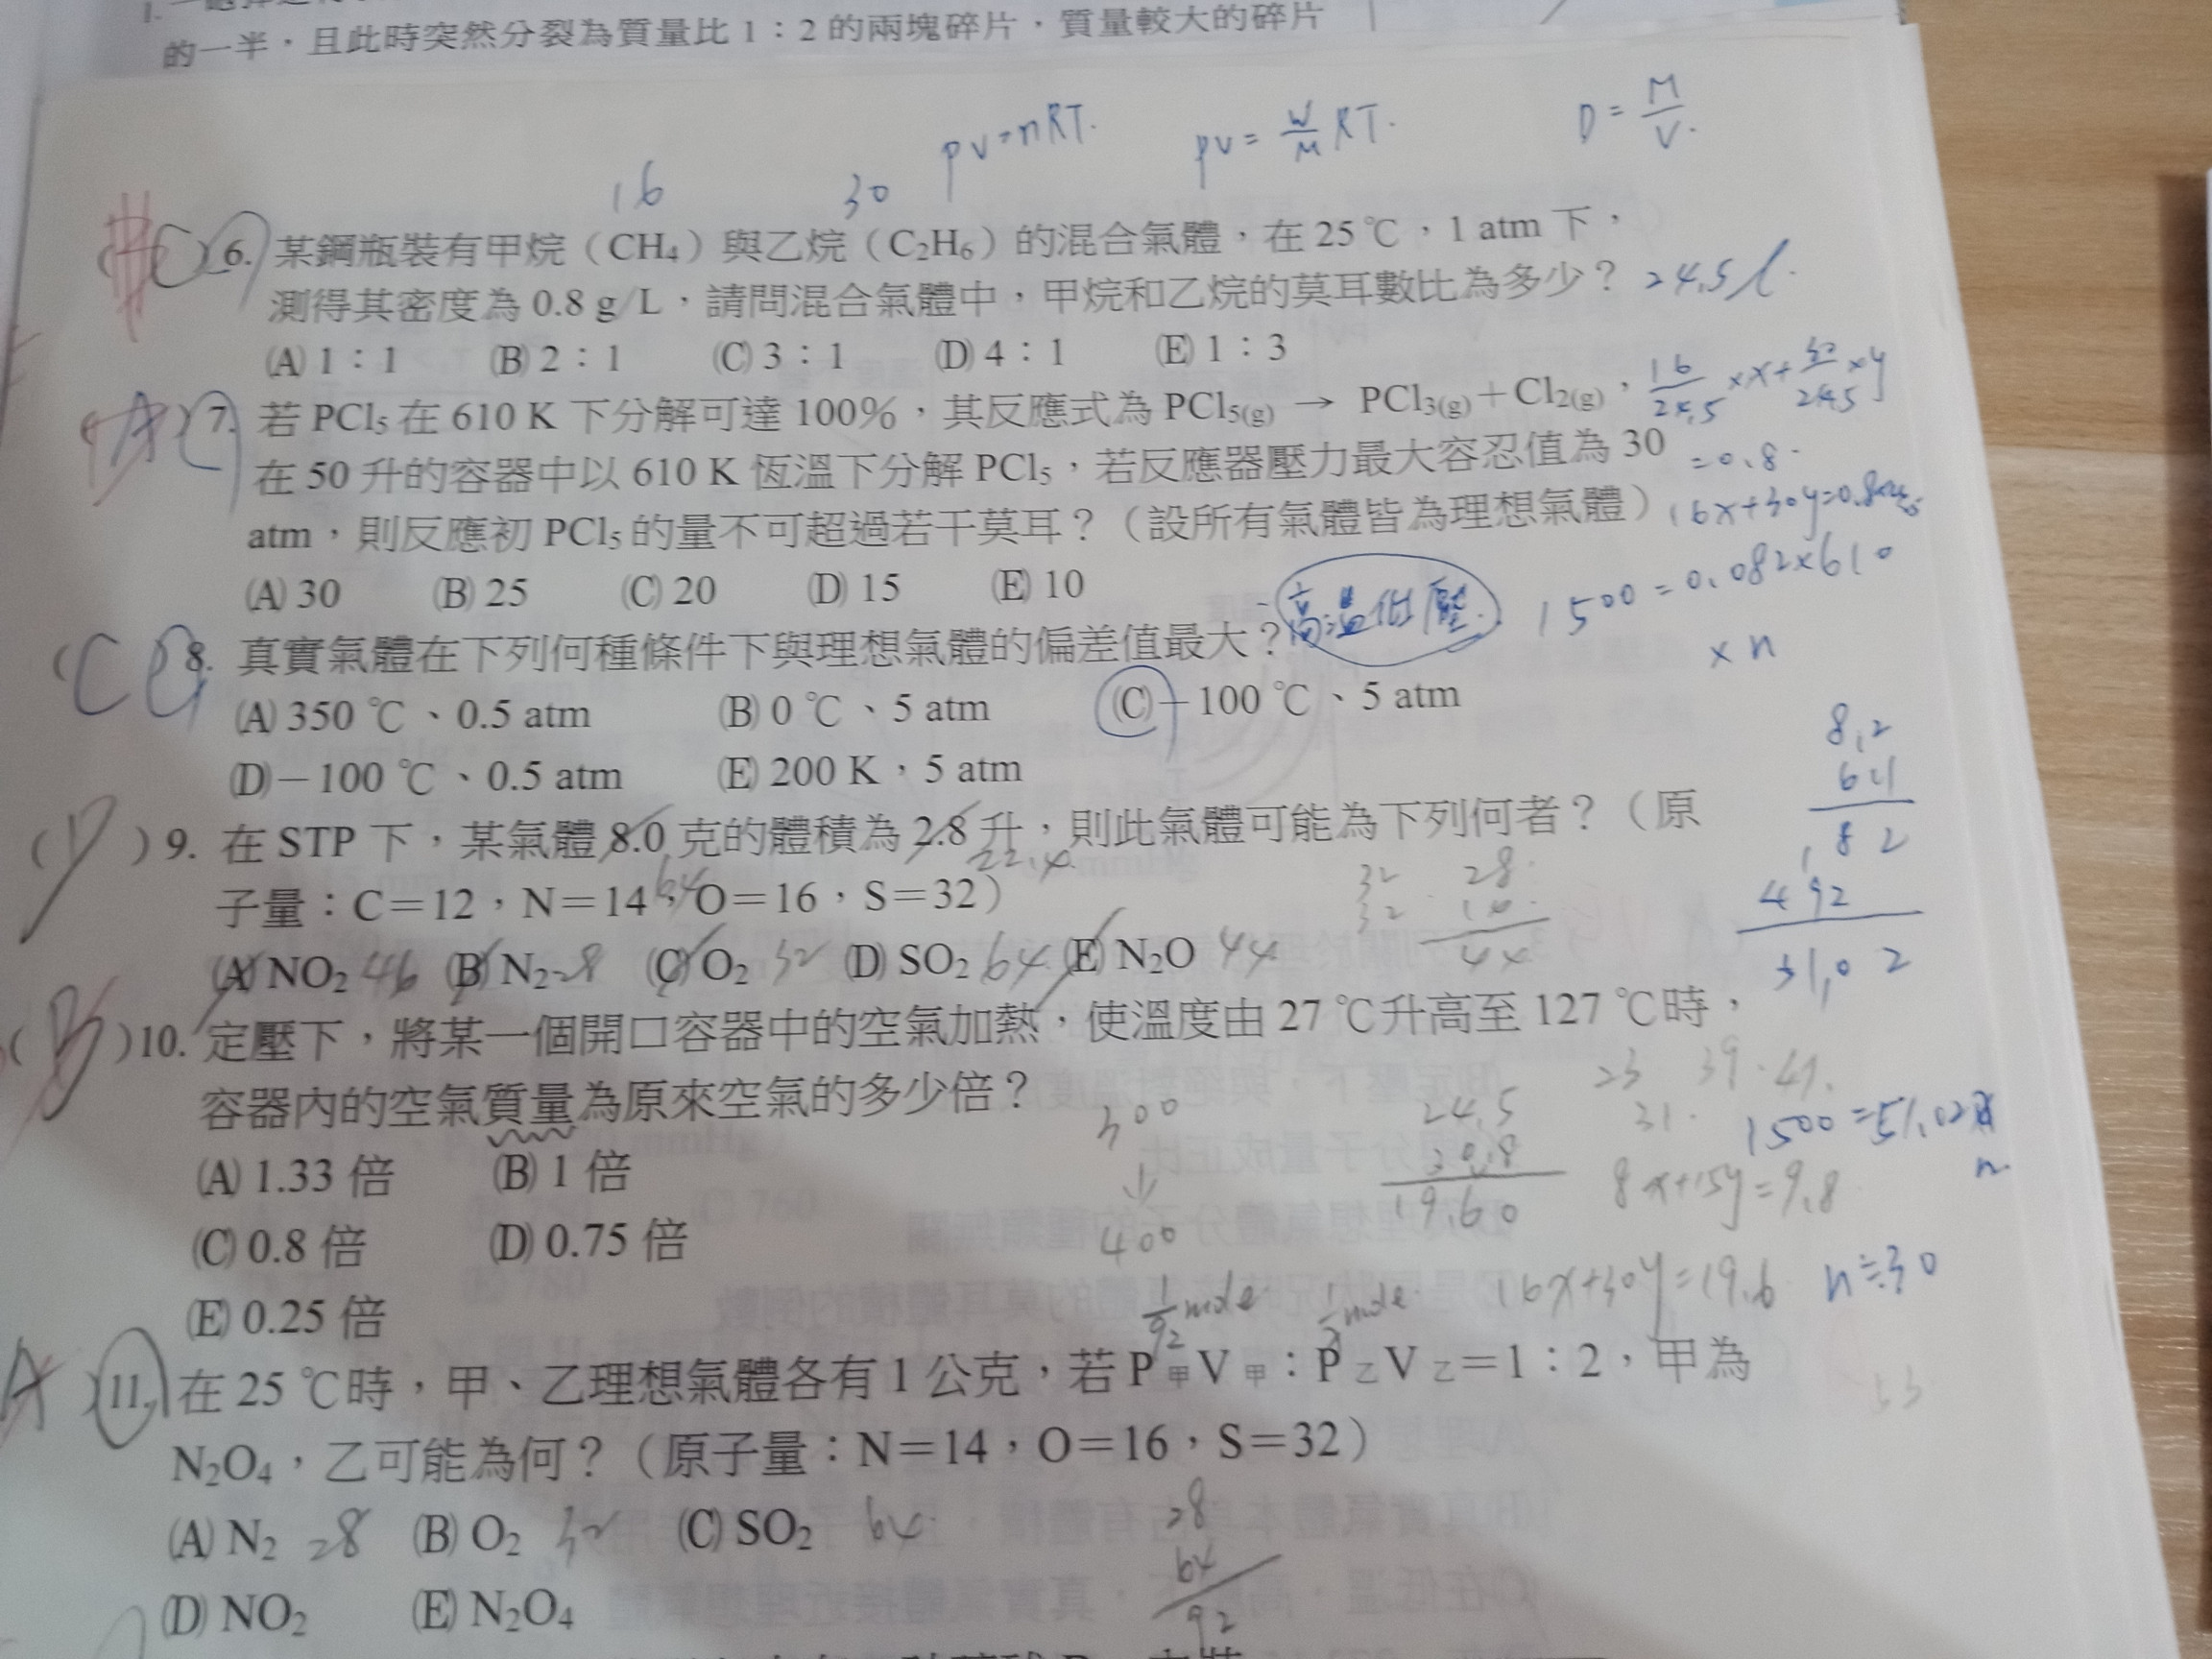 的一半，且此時突然分裂為質量比 1：2 的兩塊碎片，質量較大的碎片
pv=nRT. pv= W/M RT. D= M/V.
16 30
C 6. 某鋼瓶裝有甲烷（CH₄）與乙烷（C₂H₆）的混合氣體，在 25 ℃，1 atm 下，
測得其密度為 0.8 g/L，請問混合氣體中，甲烷和乙烷的莫耳數比為多少？ 24.5 l.
(A) 1：1 (B) 2：1 (C) 3：1 (D) 4：1 (E) 1：3
16/24.5 ×x+ 30/24.5 ×y
A 7. 若 PCl₅ 在 610 K 下分解可達 100%，其反應式為 PCl₅(g) → PCl₃(g)＋Cl₂(g)，
在 50 升的容器中以 610 K 恆溫下分解 PCl₅，若反應器壓力最大容忍值為 30
=0.8.
atm，則反應初 PCl₅ 的量不可超過若干莫耳？（設所有氣體皆為理想氣體）
(A) 30 (B) 25 (C) 20 (D) 15 (E) 10
高溫低壓. 1500=0.082×610
×n
(C 8. 真實氣體在下列何種條件下與理想氣體的偏差值最大？
(A) 350 ℃、0.5 atm (B) 0 ℃、5 atm (C)－100 ℃、5 atm
(D)－100 ℃、0.5 atm (E) 200 K，5 atm
8.2
61
82
492
( D ) 9. 在 STP 下，某氣體 8.0 克的體積為 2.8 升，則此氣體可能為下列何者？（原
22.4
子量：C＝12，N＝14，O＝16，S＝32）
64
32 28
32 16
44
(A) NO₂ 46 (B) N₂ 28 (C) O₂ 32 (D) SO₂ 64 (E) N₂O 44
( )10. 定壓下，將某一個開口容器中的空氣加熱，使溫度由 27 ℃升高至 127 ℃時，
容器內的空氣質量為原來空氣的多少倍？
300
↓
400
23 39.41.
31.
24.5
0.8
19.60
1500=51.02×
n
8x+15y=9.8
(A) 1.33 倍 (B) 1 倍
(C) 0.8 倍 (D) 0.75 倍
(E) 0.25 倍
16x+30y=19.6 n≒30
1/92 mole
A )11. 在 25 ℃時，甲、乙理想氣體各有 1 公克，若 P甲V甲：P乙V乙＝1：2，甲為
N₂O₄，乙可能為何？（原子量：N＝14，O＝16，S＝32）
(A) N₂ 28 (B) O₂ 32 (C) SO₂ 64
(D) NO₂ (E) N₂O₄
28
64
92